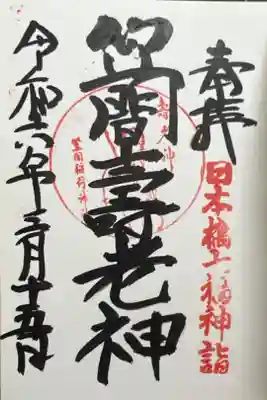 奉拝
日本橋七福神詣
笠間壽老神
壽老神
笠間稲荷神
令和六年三月十五日